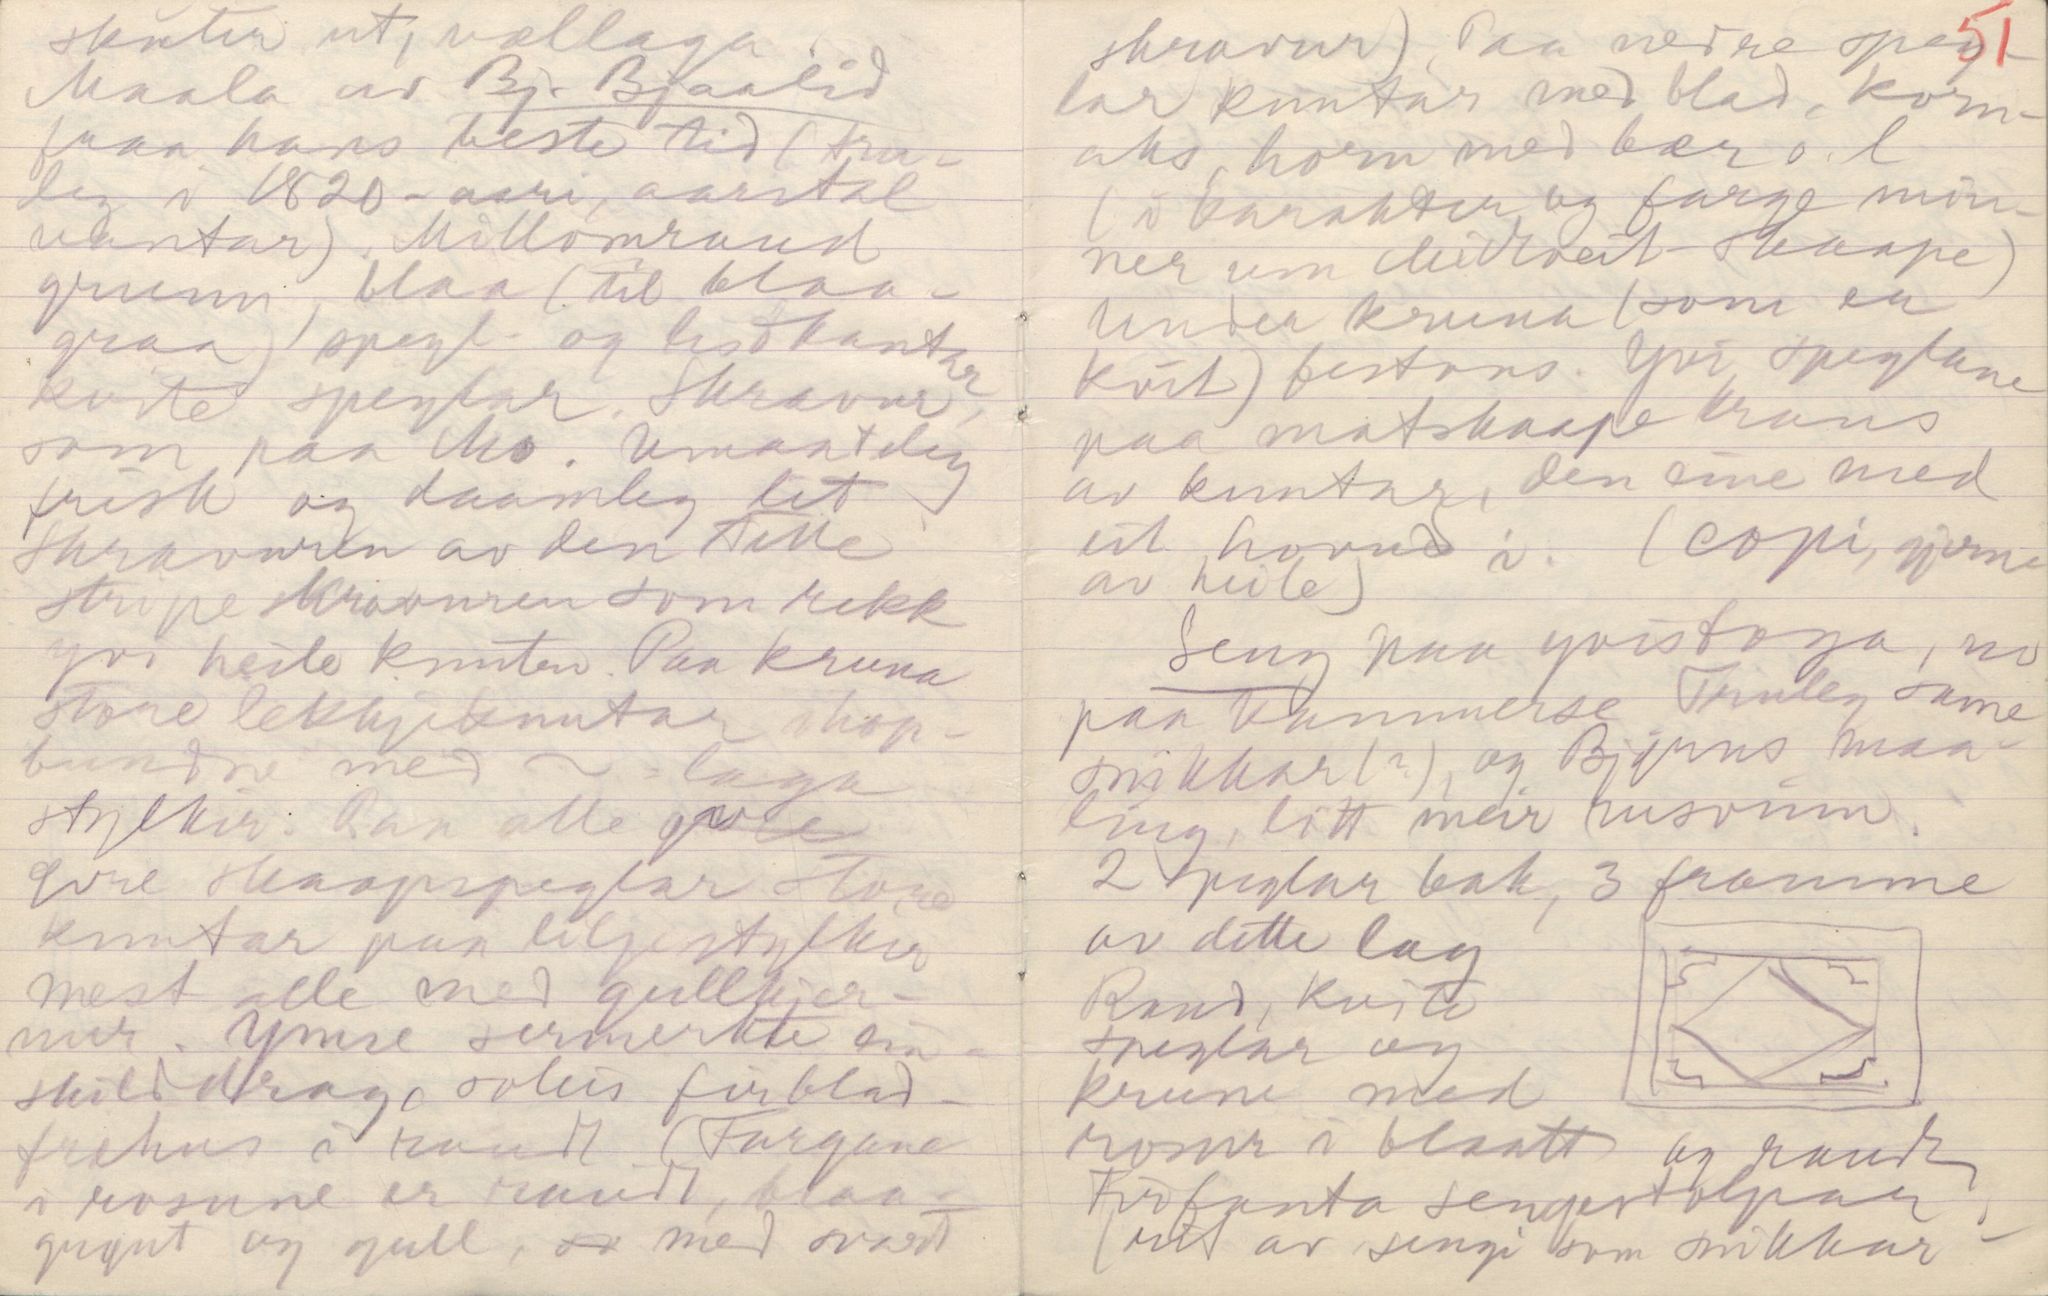 skuter ut, vellaga.
Maala av Bj. Bjaalid
fraa hans beste tid (tru-
leg i 1820-aari, aarstal
vantar). Millomraud
grunn, blaa (til blaa-
graa) spegl- og listkantar,
kvite speglar. Skravur
som paa Mo. Umaateleg
frisk og daamleg let
Skravuren av den tette
stripeskravuren som rekk
yvi heile knuten. Paa kruna
store lekkjeknutar shop-
bundne med ~-laga
stylkir. Paa alle gvre
gvre skaapspeglar store
knutar paa liljestylkir
mest alle med gullkjer-
nur. Ymse sermerkte ein-
skilddrag, soleis firblad-
frøhus i raudt. (Fargane
i rosune er raudt, blaa-
grønt og gull, so med svart
51
skravur). Paa nedre speg-
lar knutar med blad, korn-
aks, horn med bær o. l
(i karakter og farge min-
ner um Midtveit-skaape)
Under kruna (som er
kvit) festons. Yvi speglane
paa matskaape krans
av knutar, den eine med
eit hovud i. (copi, gjerne
av heile)
Seng paa yvistoga, no
paa kammerse. Truleg same
snikkar (?), og Bjørns maa-
ling, litt meir rusovin.
2 speglar bak, 3 framme
av dette lag
Raud, kvite
speglar og
krune med
rosur i blaatt og raudt,
Firfanta sengestolpar,
(eit av sengi som snikkar-